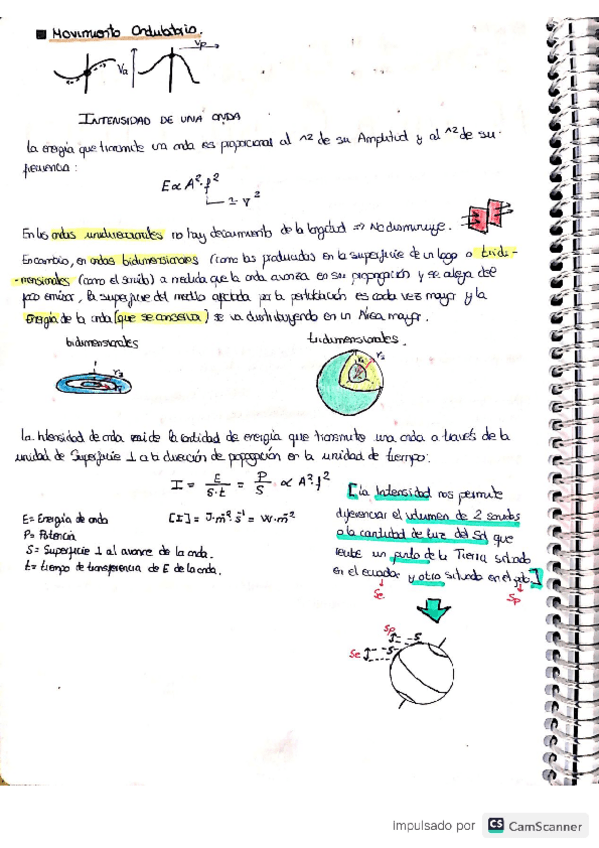 Movimiento Ondulatorio.
vp
Va
INTENSIDAD DE UNA ONDA
La energía que transmite una onda es proporcional al ^2 de su Amplitud y al ^2 de su
frecuencia:
E ∝ A²·f²
En las ondas unidireccionales no hay decaimiento de la longitud => No disminuye.
En cambio, en ondas bidimensionales (como las producidas en la superficie de un lago o tridi-
-mensionales (como el sonido) a medida que la onda avanza en su propagación y se aleja del
foco emisor, la superficie del medio afectada por la perturbación es cada vez mayor y la
Energía de la onda (que se conserva) se va distribuyendo en un Área mayor.
bidimensionales
tridimensionales.
La Intensidad de onda mide la cantidad de energía que transmite una onda a través de la
unidad de Superficie ⊥ a la dirección de propagación en la unidad de tiempo:
I = E/S·t = P/S ∝ A²f²
E= Energía de onda
[I] = J·m⁻²·s⁻¹ = W·m⁻²
P= Potencia
S= Superficie ⊥ al avance de la onda.
t= tiempo de transferencia de E de la onda.
[La Intensidad nos permite
diferenciar el volumen de 2 sonidos
o la cantidad de luz del Sol que
recibe un punto de la Tierra situado
en el ecuador y otro situado en el polo.]
Se
Sp
Sp
I
S
Se
I
S
Impulsado por CS CamScanner